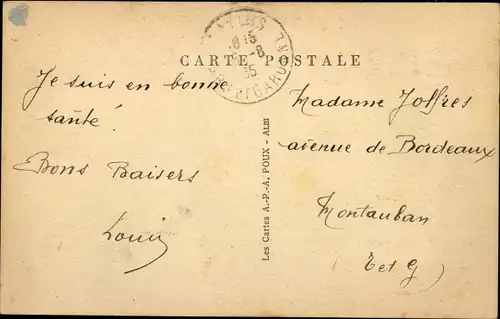 CARTE POSTALE
Je suis en bonne
santé !
Bons Baisers
Louis
Les Cartes A.-P.-A. POUX - ALBI
Madame Joffres
avenue de Bordeaux
Montauban
(T et G)